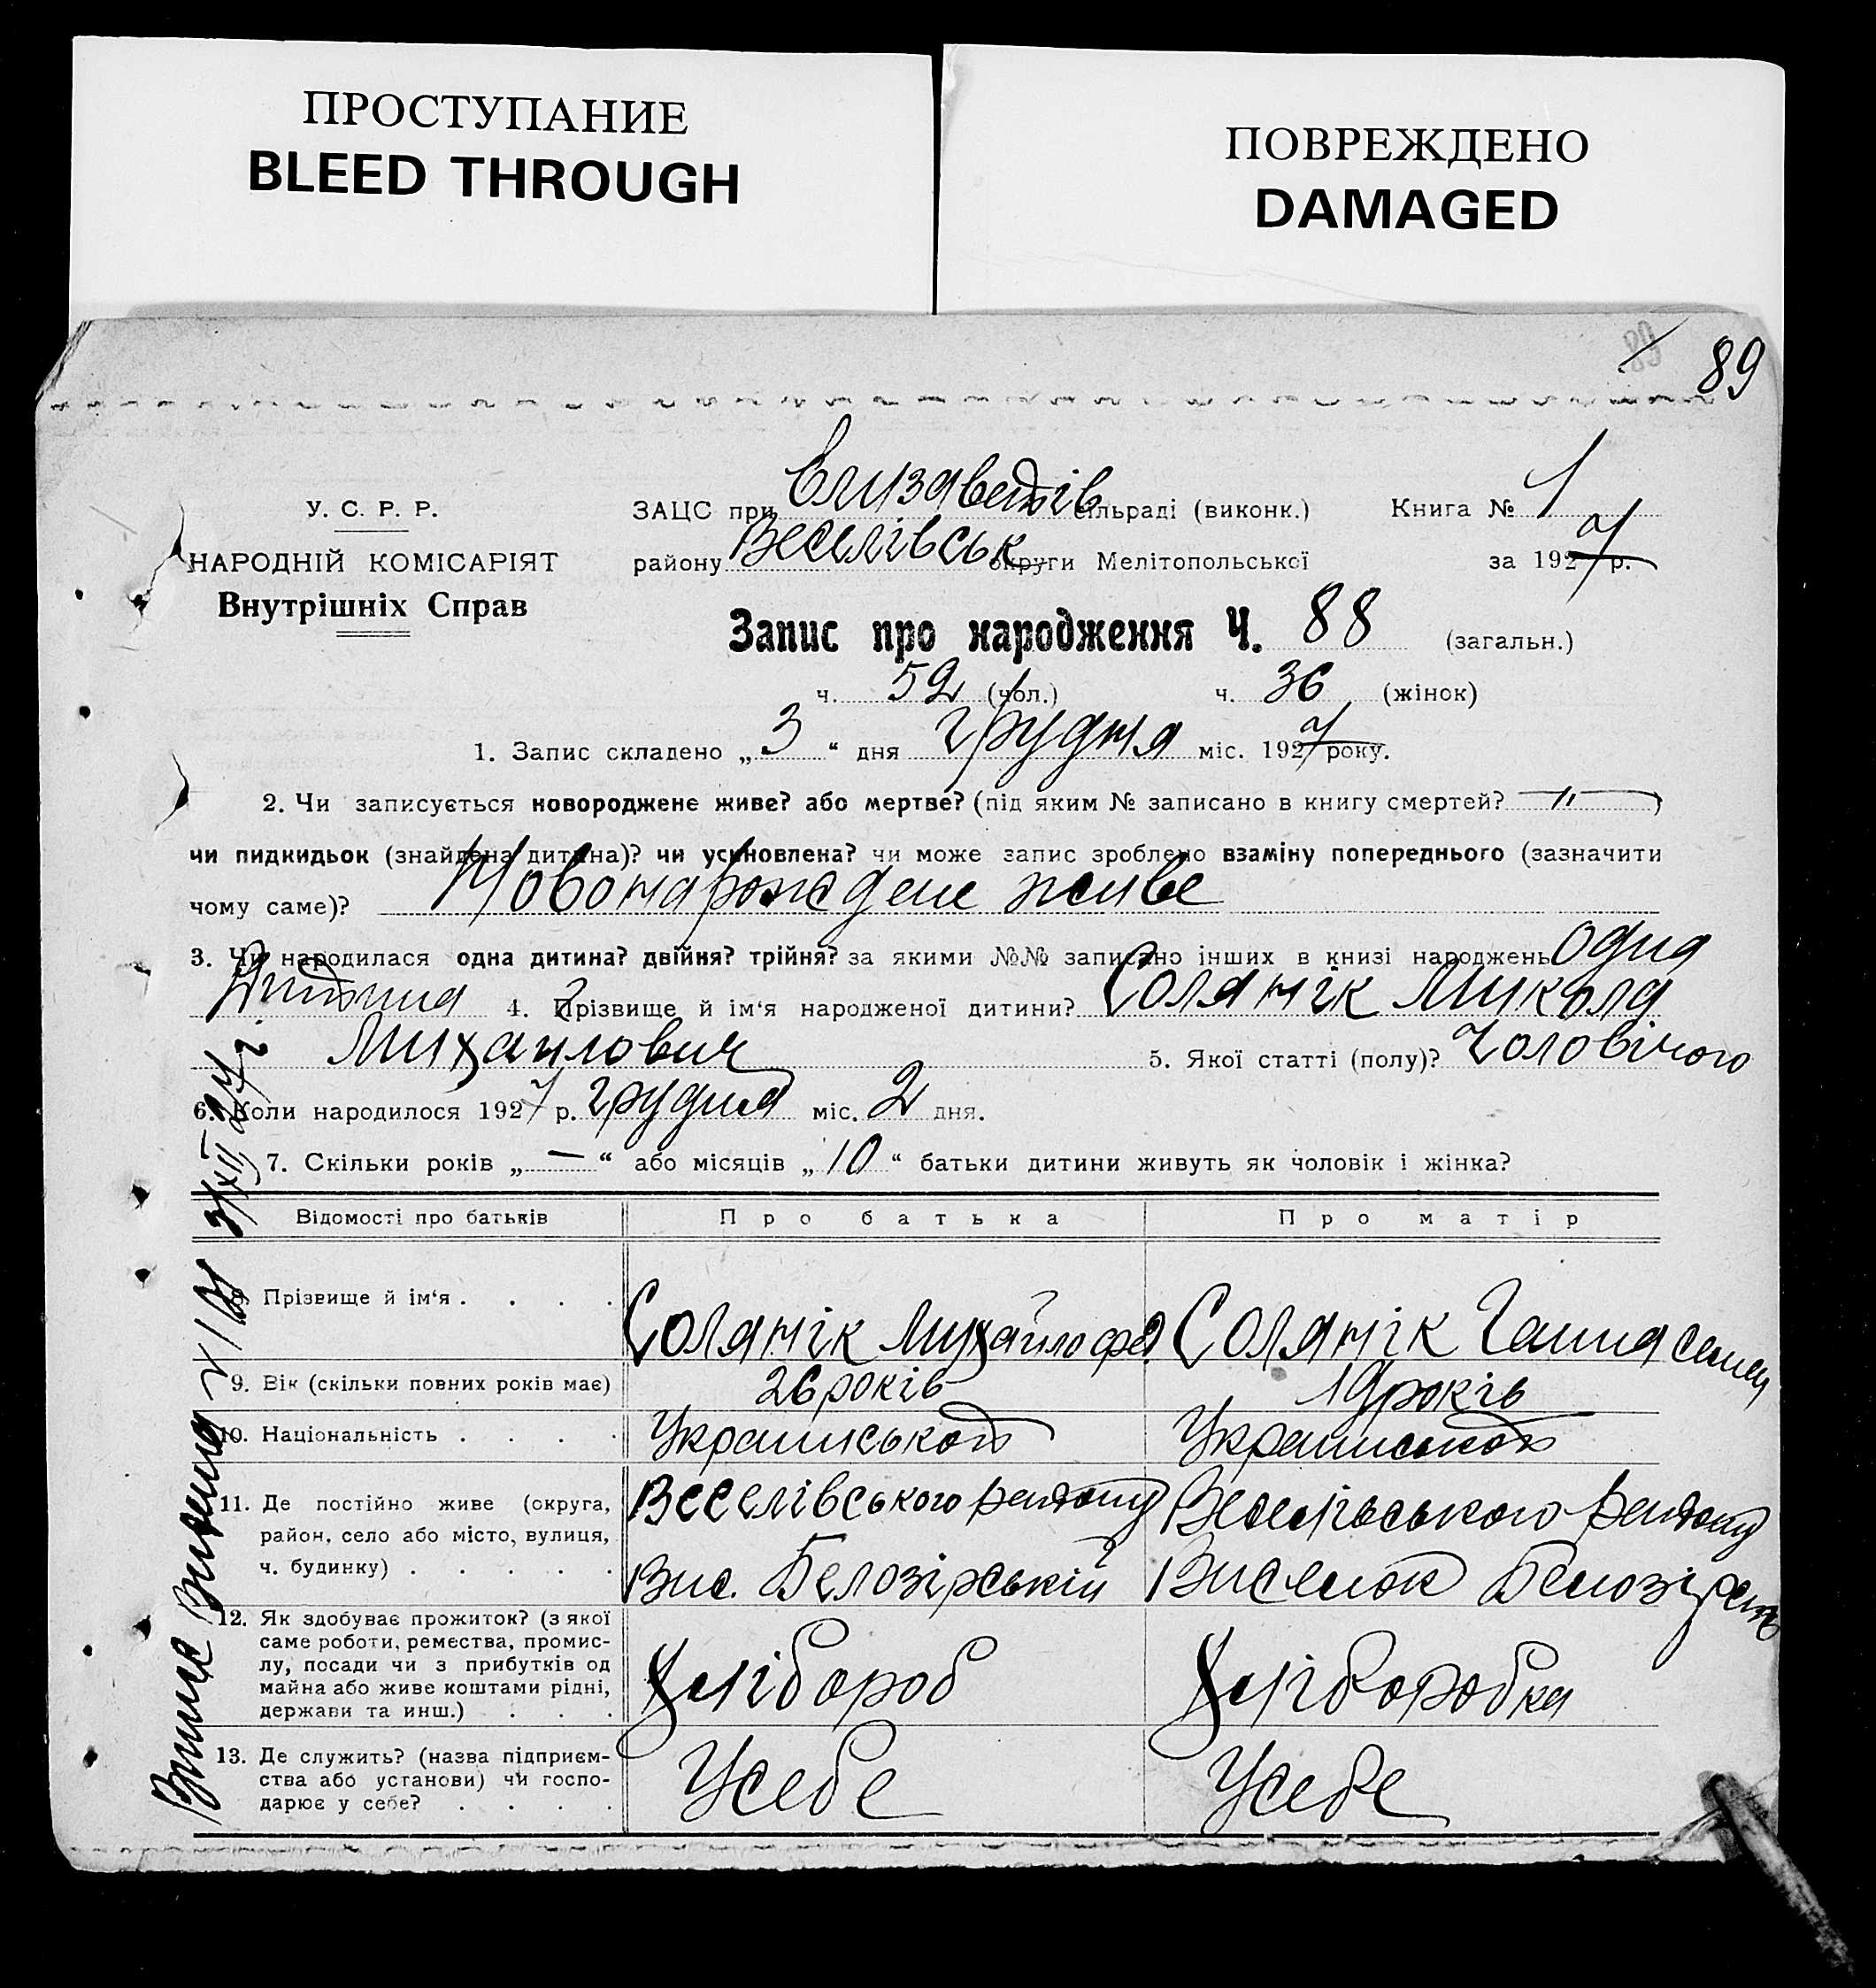 ПРОСТУПАНИЕ
BLEED THROUGH
ПОВРЕЖДЕНО
DAMAGED
89
89
У. С. Р. Р.
НАРОДНІЙ КОМІСАРІЯТ
Внутрішніх Справ
ЗАЦС при Єлизаветів сільраді (виконк.) Книга № 1
району Веселівськ округи Мелітопольської за 1927 р.
Запис про народження Ч. 88 (загальн.)
ч. 52 (чол.) ч. 36 (жінок)
1. Запис складено „3“ дня грудня міс. 1927 року.
2. Чи записується новороджене живе? або мертве? (під яким № записано в книгу смертей? —„— )
чи пидкидьок (знайдена дитина)? чи усиновлена? чи може запис зроблено взаміну попереднього (зазначити
чому саме)? Новонарождене живе
3. Чи народилася одна дитина? двійня? трійня? за якими №№ записано інших в книзі народжень одна
Дитина 4. Прізвище й ім'я народженої дитини? Солянік Микола
Михайлович 5. Якої статті (полу)? Чоловічого
6. Коли народилося 1927 р. грудня міс. 2 дня.
7. Скільки років „—“ або місяців „10“ батьки дитини живуть як чоловік і жінка?
Відомості про батьків Про батька Про матір
8. Прізвище й ім'я . . . . Солянік Михайло Фед. Солянік Ганна Семен
9. Вік (скільки повних років має) 26 років 19 років
10. Національність . . . . Украинськой Украинськой
11. Де постійно живе (округа, Веселівського району Веселівського району
район, село або місто, вулиця,
ч. будинку) . . . . . Вис. Белозірський Виселок Белозірськ
12. Як здобуває прожиток? (з якої
саме роботи, ремества, промис-
лу, посади чи з прибутків од
майна або живе коштами рідні,
держави та инш.) . . . Хлібороб Хлібооробка
13. Де служить? (назва підприєм-
ства або установи) чи госпо-
дарює у себе? . . . . Усебе Усебе
3/XII 27 г.